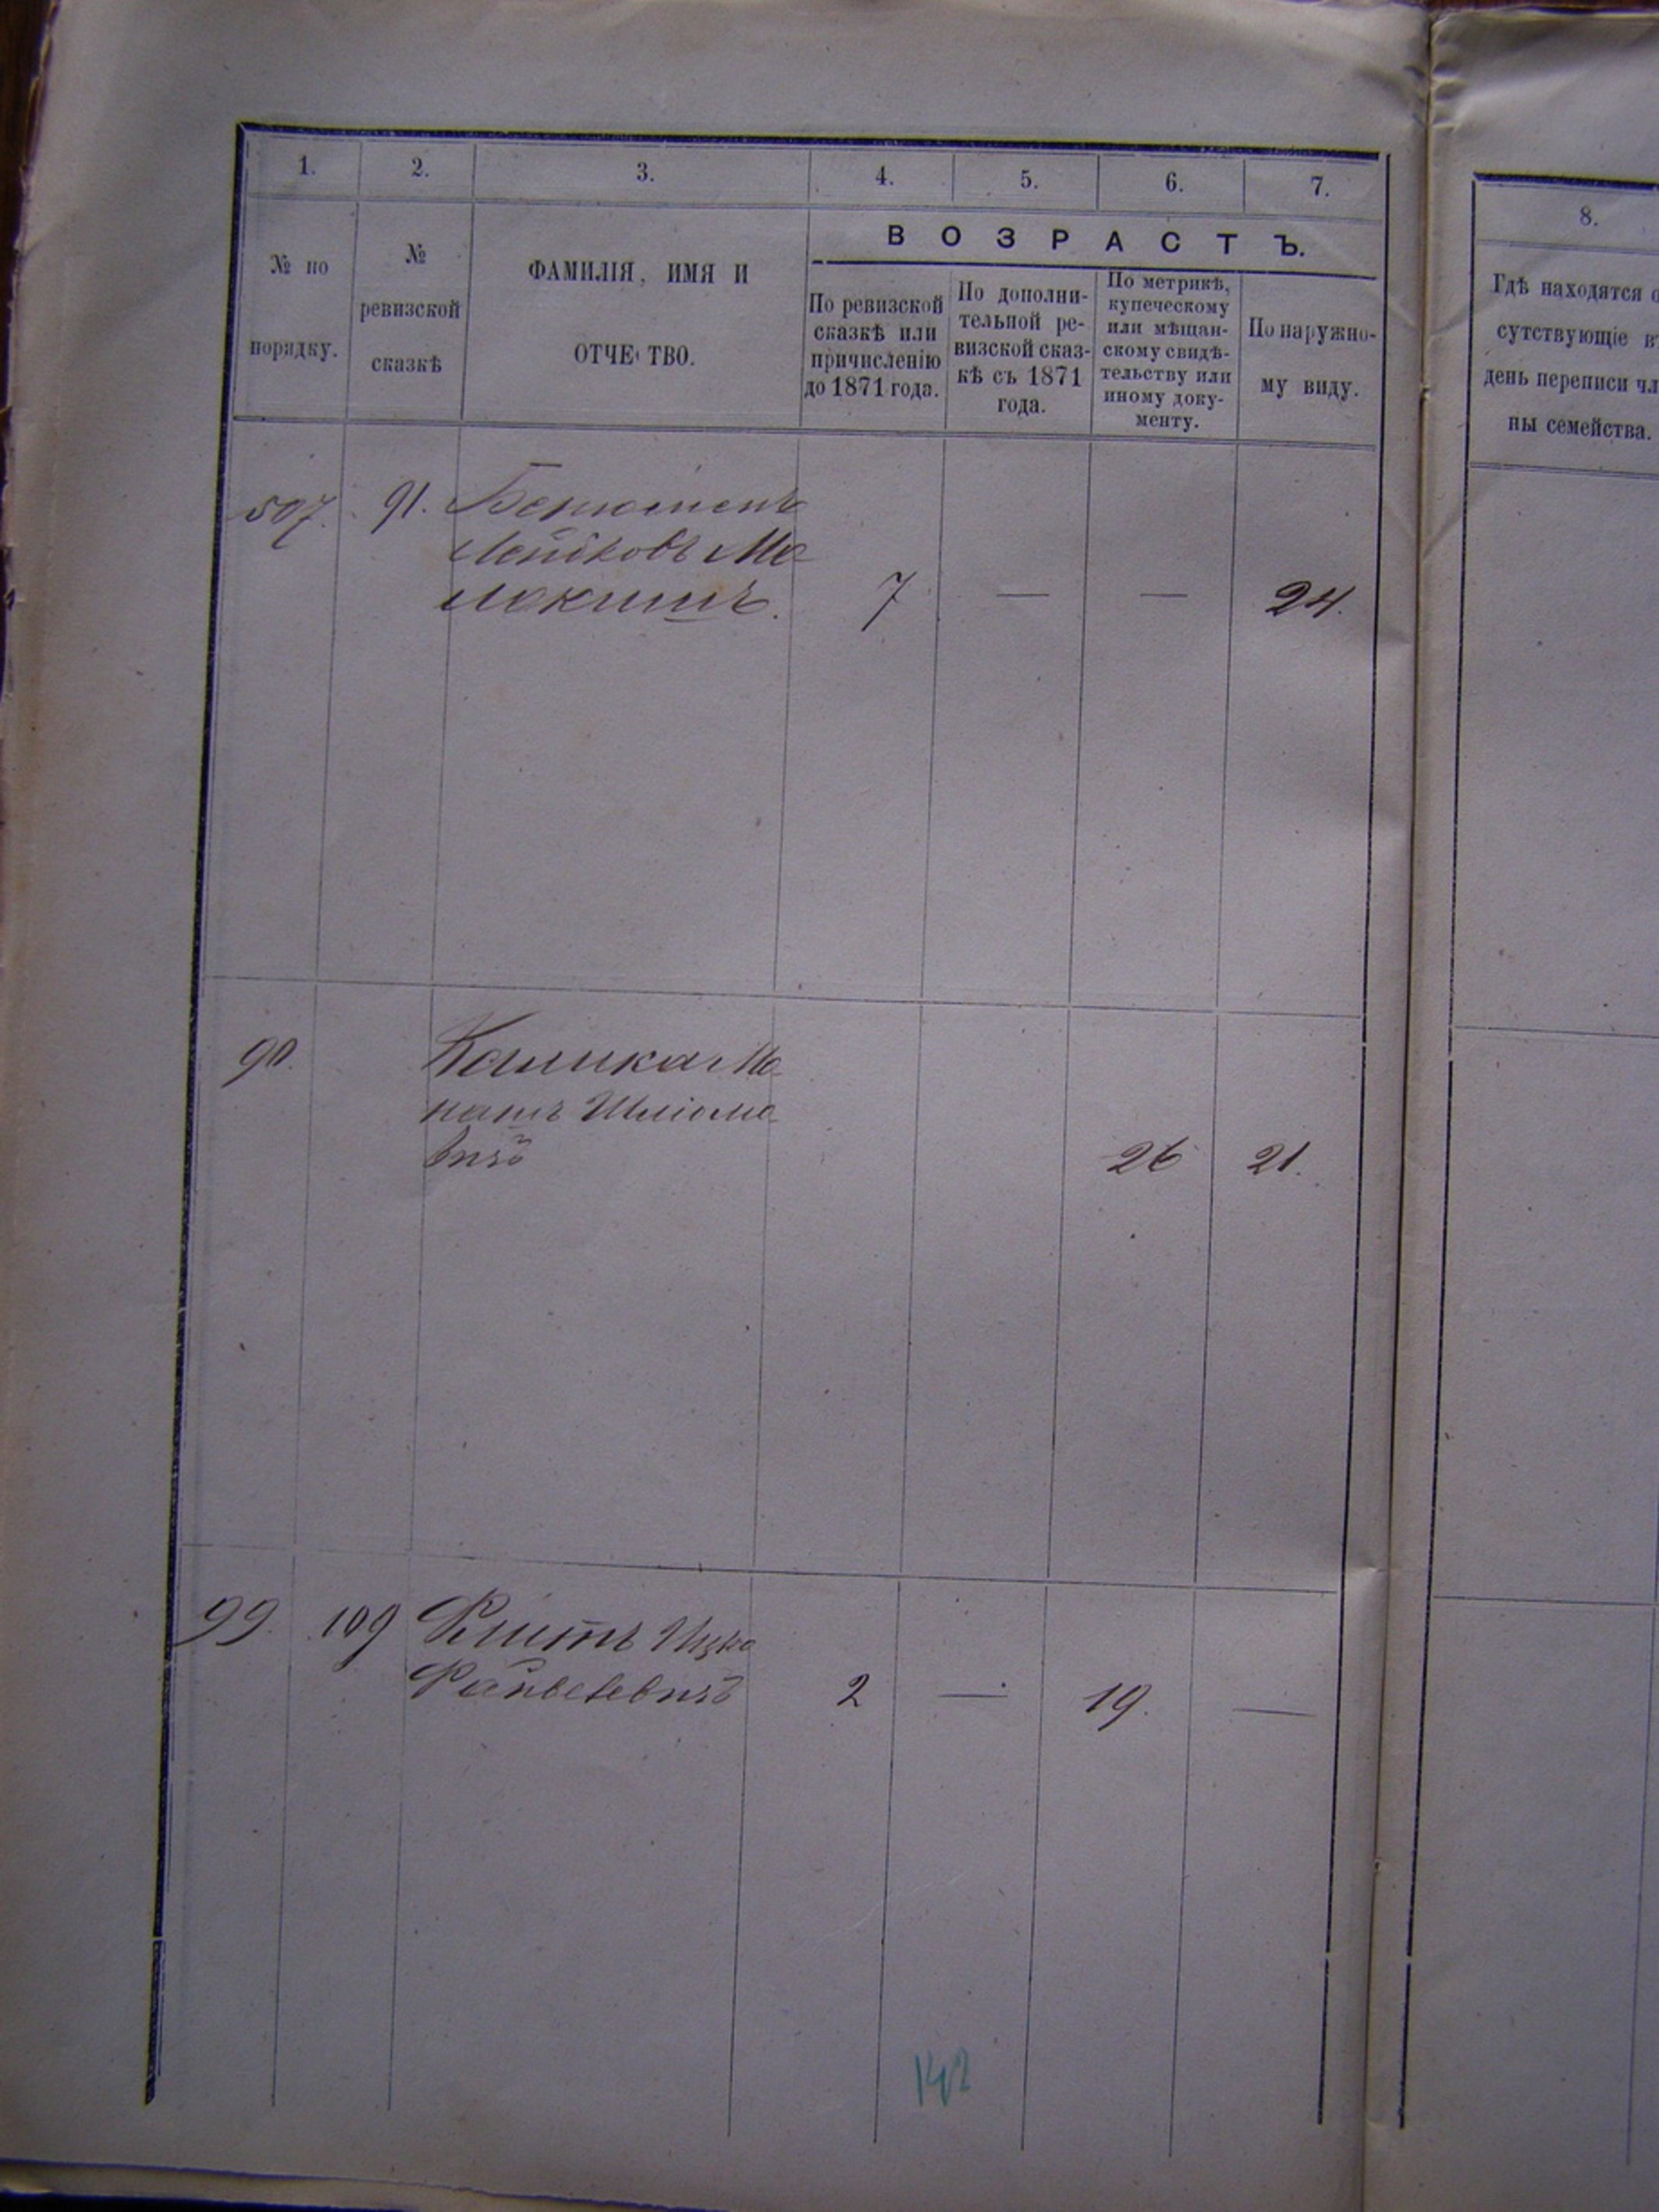 1. 2. 3. 4. 5. 6. 7.
№ по
порядку.
№
ревизской
сказкѣ
ФАМИЛІЯ, ИМЯ И
ОТЧЕСТВО.
ВОЗРАСТЪ.
По ревизской
сказкѣ или
причисленію
до 1871 года.
По дополни-
тельной ре-
визской сказ-
кѣ съ 1871
года.
По метрикѣ,
купеческому
или мѣщан-
скому свидѣ-
тельству или
иному доку-
менту.
По наружно-
му виду.
507. 91.
Лейбовъ Мо-
7 — — 24.
98.
Шліомо-
вичъ
26 21.
99. 109 Ицко
Файвелевичъ 2 — 19. —
142
8.
Гдѣ находятся о
сутствующіе в
день переписи чл
ны семейства.